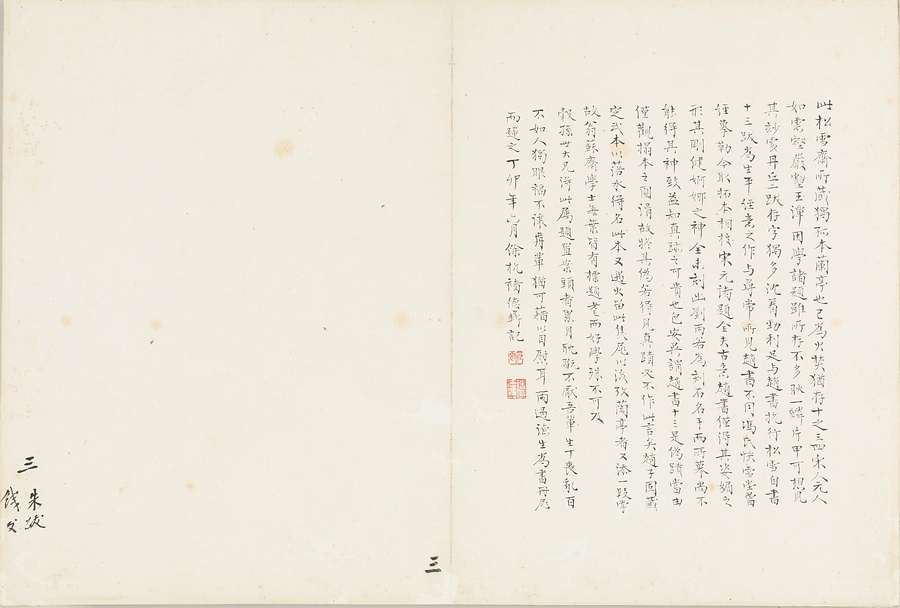 此松雪齋所藏獨孤本蘭亭也已為火焚猶存十之三四宋人元人
如雲壑嚴壑王渾困學諸題雖所存不多耿一鱗片甲可想見
其妙處丹丘二跋存字獨多沈着勁利足与趙書抗行松雪自書
十三跋為生平任意之作与尋常所見趙書不同馮氏快雪堂曾
經摹勒今取拓本相挍宋元諸題全失古意趙書僅得其姿媚之
形其剛健婀娜之神全未刻出劉雨若為刻石名手而所摹尚不
能得其神致益知真跡之可貴也包安吳謂趙書十三是偽蹟當由
僅觀搨本之圓滑故將其偽若得見真蹟必不作此言矣趙子固藏
定武本以落水得名此本又遇火留此焦尾以流考蘭亭者又添一段掌
故翁蘇齋學士每葉皆有標題耄而好學殊不可及
穀孫世大兄得此属題置案頭者累月耽玩不厭吾輩生丁喪亂百
不如人獨眼福不讓前輩猶可藉以自慰耳雨過涼生為書冊尾
而還之丁卯年六月餘杭褚德彝記
三
三
朱跋
錢父